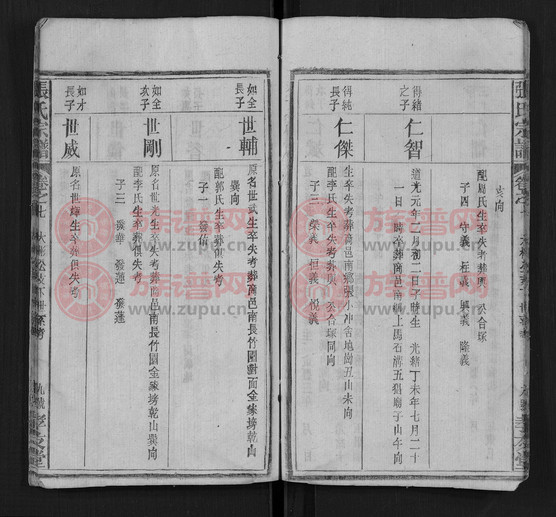 張氏宗譜
卷之七
亥向
配周氏生卒失考葬與 公合塚
子四 守義 在義 興義 隆義
得緒之子 仁智
道光元年二月初二日子時生 光緒丁未年七月二十
一日 時卒葬商邑南 上馬石灣五 廟子山午向
得純長子 仁傑
生卒失考葬商邑南鄉張小冲舍地崗丑山未向
配李氏生卒失考葬與 公合塚同向
子三 榮義 恒義 悅義
如全長子 世輔
原名世武生卒失考葬商邑南長竹園對面金線塝乾山
巽向
配郭氏生卒葬俱失考
子一
如全次子 世剛
原名世光生卒失考葬商邑南長竹園金線塝乾山巽向
配李氏生卒葬俱失考
子三 發華 發蓮 發蓬
如才長子 世威
原名世輝生卒葬俱失考
張氏宗譜
卷之七
孝友堂
族谱网
www.zupu.cn